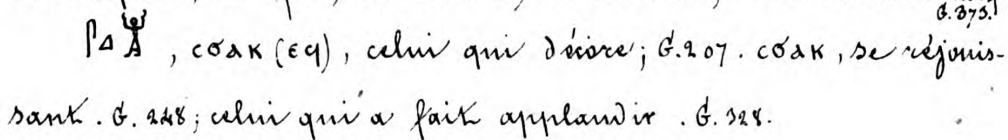 G. 373.
𓋴𓈎𓀠, ⲥⲟⲁⲕ (ⲉϥ), celui qui décore; G. 207. ⲥⲟⲁⲕ, se réjouis-
sant. G. 248; celui qui a fait applaudir. G. 328.